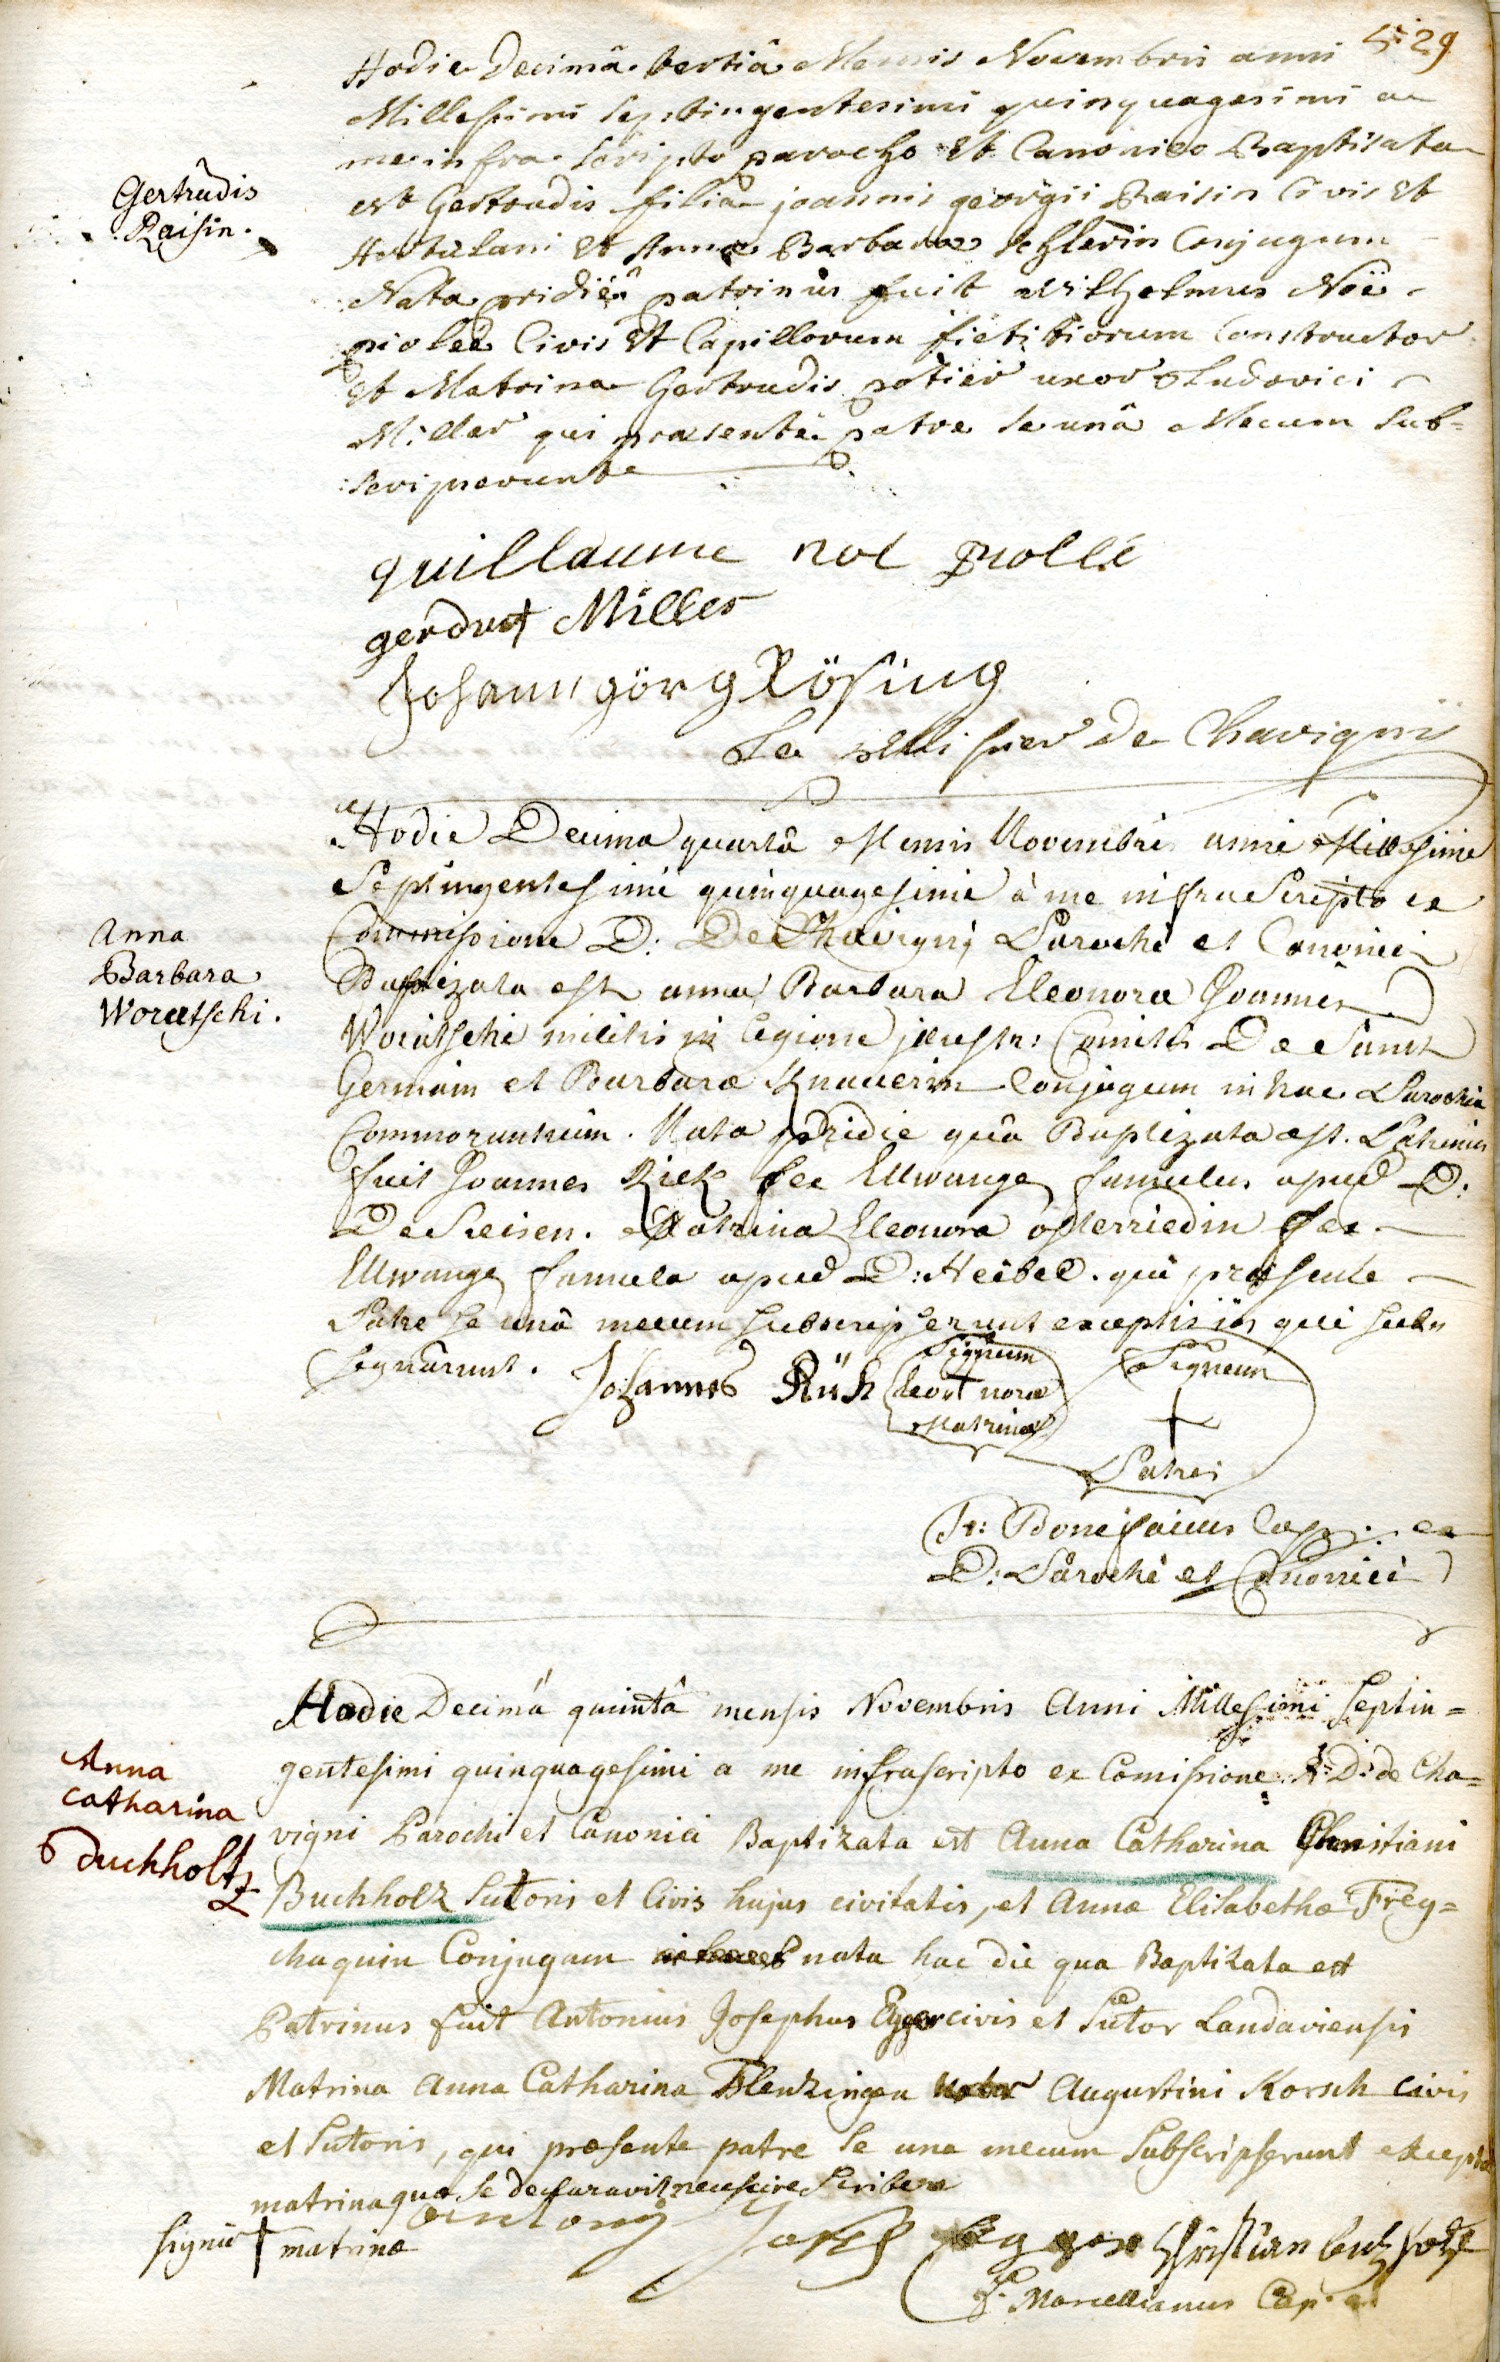 529
Hodie Decimâ tertiâ Mensis Novembris anni
Millesimi septingentesimi quinquagesimi a
me infra scripto parocho et Canonico Baptisata
est Gertrudis filia joannis georgii Raisin Civis et
Hortulani et Annae Barbarae Conjugum
Nata pridiè patrinus fuit Wilhelmus Noë
piolée Civis et Capillorum fictitiorum Constructor
et Matrina Gertrudis potier uxor Ludovici
Miller qui praesente patre se unâ Mecum sub=
scripserunt
Gertrudis
Raisin.
guillaume noe piollé
gerdrut Miller
Johann görg Rösing
Le pellissier de Chavignÿ
Hodie Decima quartâ Mensis Novembris anni Millesimi
Septingentesimi quinquagesimi à me infra Scripto ex
Commissione D: De Chavigny Parochi et Canonici
Baptizata est anna Barbara Eleonora Joannis
Woratschi militis in legione illustr: Comitis De Sanct
Germain et Barbarae Knauerin Conjugum in hac Parochia
Commorantium. Nata pridie quâ Baptizata est. Patrinus
fuit Joannes Rick ex Ellwange famulus apud D:
De . Matrina Eleonora osterriedin ex
Ellwange famula apud D: Heibel. qui praesente
Patre se unâ mecum subscripserunt exceptis iis qui sub
signârunt.
Anna
Barbara
Woratschi.
Johannes Rück
Signum
leo + norae
Matrinae
Signum
+
Patris
Fr: Bonifacius Cap: ex
D: Parochi et Canonici
Hodie Decimâ quintâ mensis Novembris Anni Millesimi Septin=
gentesimi quinquagesimi a me infrascripto ex Comissione R: D: de Cha=
vigni Parochi et Canonici Baptizata est Anna Catharina Christiani
Buchholz Sutoris et Civis hujus civitatis, et Annae Elisabethae Frey=
chaquin Conjugum nata hac die qua Baptizata est
Patrinus fuit Antonius Josephus Egger civis et Sutor Landaviensis
Matrina Anna Catharina Flenzingen uxor Augustini Korsch civis
et Sutoris, qui praesente patre se una mecum Subscripserunt excepta
matrina quae se declaravit nescire Scribere
Anna
Catharina
Buchholtz
Signū + matrinae
antony Joseph Egger Christian buchholtz
F. Marcellianus Cap.